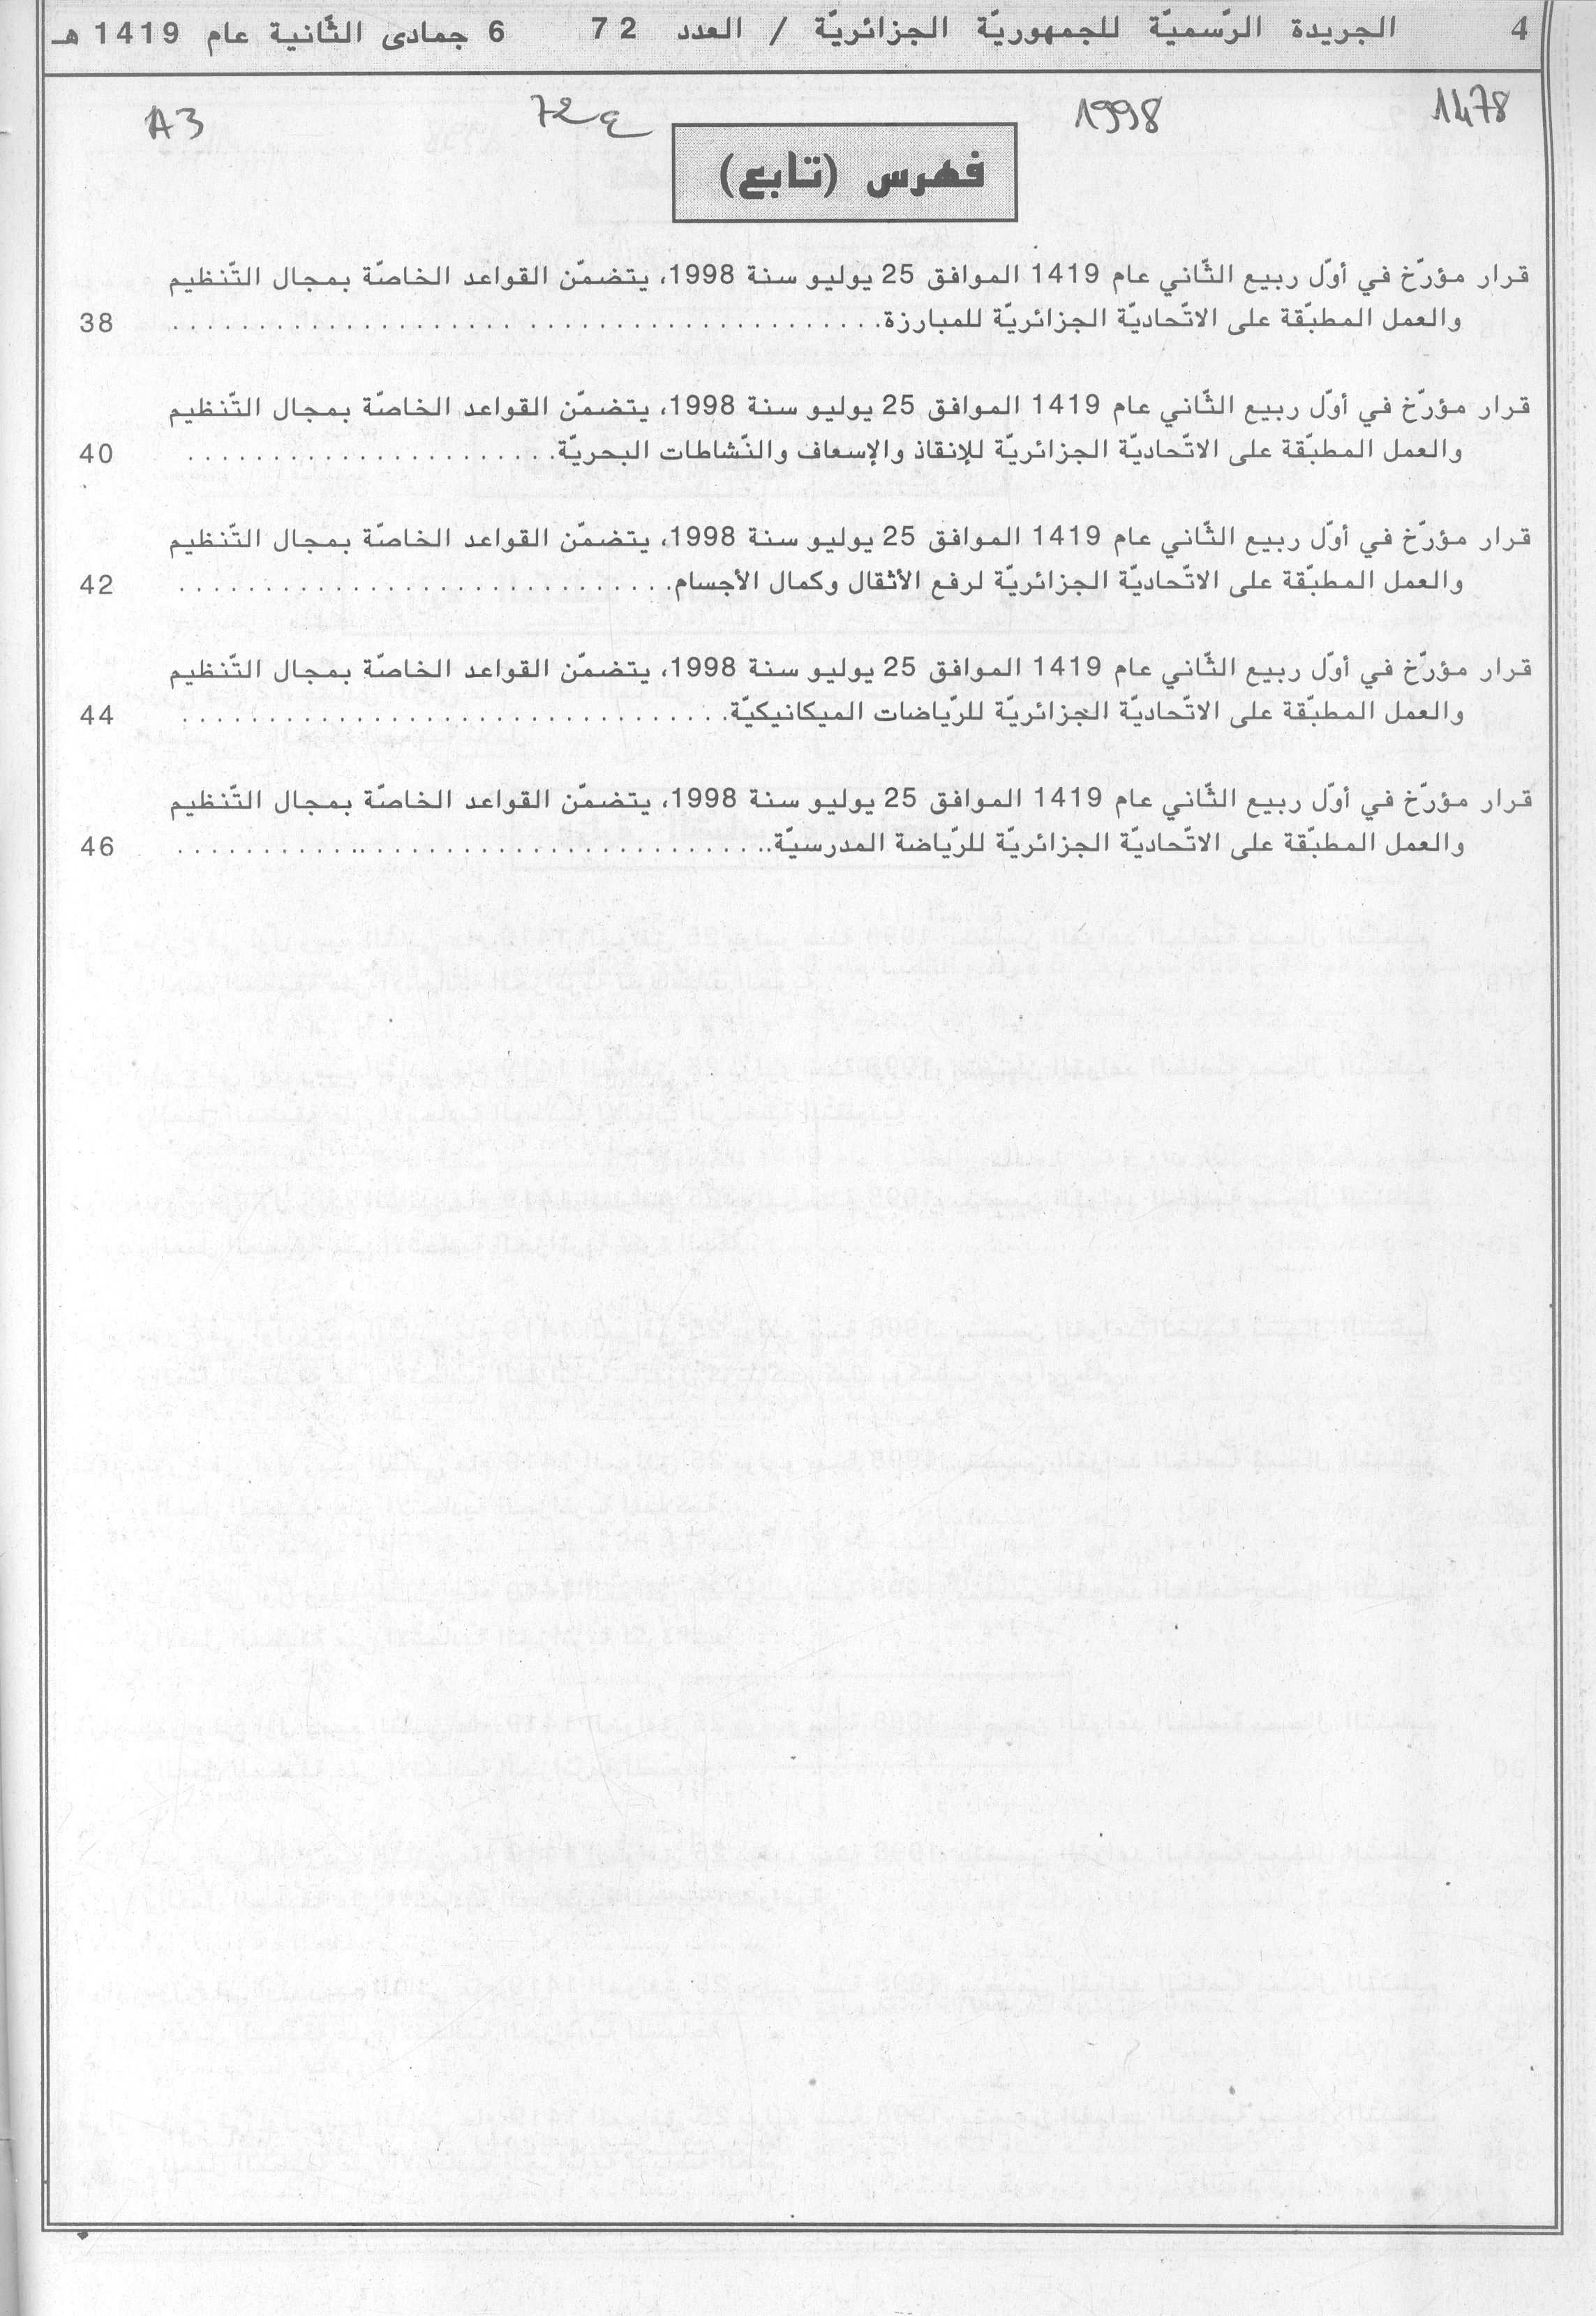 4 الجريدة الرّسميّة للجمهوريّة الجزائريّة / العدد 72 6 جمادى الثّانية عام 1419 هـ
1478 1998 72ع A3
فهرس (تابع)
قرار مؤرّخ في أوّل ربيع الثّاني عام 1419 الموافق 25 يوليو سنة 1998، يتضمّن القواعد الخاصّة بمجال التّنظيم
والعمل المطبّقة على الاتّحاديّة الجزائريّة للمبارزة........................................ 38
قرار مؤرّخ في أوّل ربيع الثّاني عام 1419 الموافق 25 يوليو سنة 1998، يتضمّن القواعد الخاصّة بمجال التّنظيم
والعمل المطبّقة على الاتّحاديّة الجزائريّة للإنقاذ والإسعاف والنّشاطات البحريّة...................... 40
قرار مؤرّخ في أوّل ربيع الثّاني عام 1419 الموافق 25 يوليو سنة 1998، يتضمّن القواعد الخاصّة بمجال التّنظيم
والعمل المطبّقة على الاتّحاديّة الجزائريّة لرفع الأثقال وكمال الأجسام............................. 42
قرار مؤرّخ في أوّل ربيع الثّاني عام 1419 الموافق 25 يوليو سنة 1998، يتضمّن القواعد الخاصّة بمجال التّنظيم
والعمل المطبّقة على الاتّحاديّة الجزائريّة للرّياضات الميكانيكيّة................................ 44
قرار مؤرّخ في أوّل ربيع الثّاني عام 1419 الموافق 25 يوليو سنة 1998، يتضمّن القواعد الخاصّة بمجال التّنظيم
والعمل المطبّقة على الاتّحاديّة الجزائريّة للرّياضة المدرسيّة.................................... 46